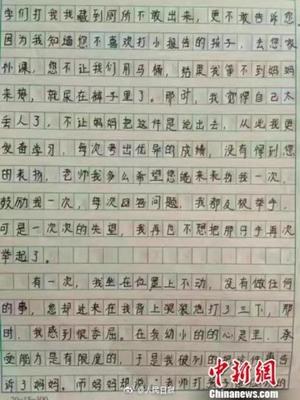 学们打我我藏到厕所不敢出来，更不敢告诉您
因为我知道您不喜欢打小报告的孩子，去您家
补课，您不让我们用马桶，结果我等不到妈妈
来接，就尿在裤子里了。那时，我觉得自己太
丢人了，不让妈妈把这件是说出去，从此我更
发奋学习，每次考出优异的成绩，没有得到您
的表扬，老师我多么希望您能来表扬我一次，
鼓励我一次，每次回答问题，我都及极举手，
可是一次次的失望，我再也不想把那只手再次
举起了。
有一次，我坐在位置上不动，没有做任何
的事，您却过来在我背上狠狠地打了三下，那
时，我感到很委屈。在我幼小的的心灵里，承
受能力是有限度的，于是我硬
诉了妈妈。而妈妈却说：老师打
20×15=300
@人民日报
中新网
www.chinanews.com